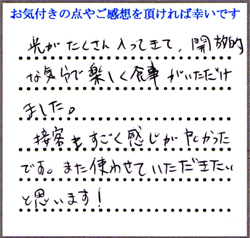 お気付きの点やご感想を頂ければ幸いです
光がたくさん入ってきて、開放的
な気分で楽しく食事がいただけ
ました。
接客もすごく感じがよかった
です。また使わせていただきたい
と思います!